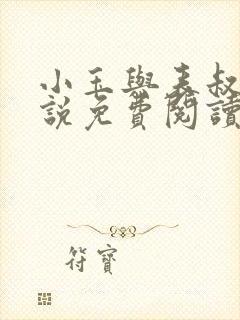 小玉與表叔
說免費閱讀
符寶